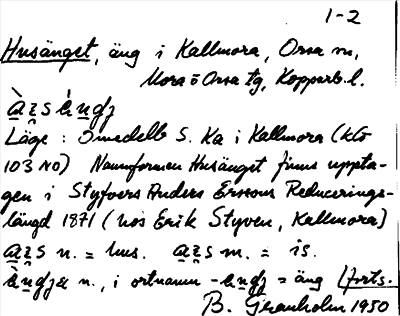 1-2
Husänget, äng i Kallmora, Orsa sn,
Mora o Orsa tg, Kopparb. l.
Läge: Omedelb S. Ka i Kallmora (kts
103 NO) Namnformen Husänget finns uppta-
gen i Styfvers Anders Erssons Reducerings-
längd 1871 (hos Erik Styven, Kallmora)
n. = hus. m. = is.
n., i ortnamn = äng (forts.
B. Granholm 1950